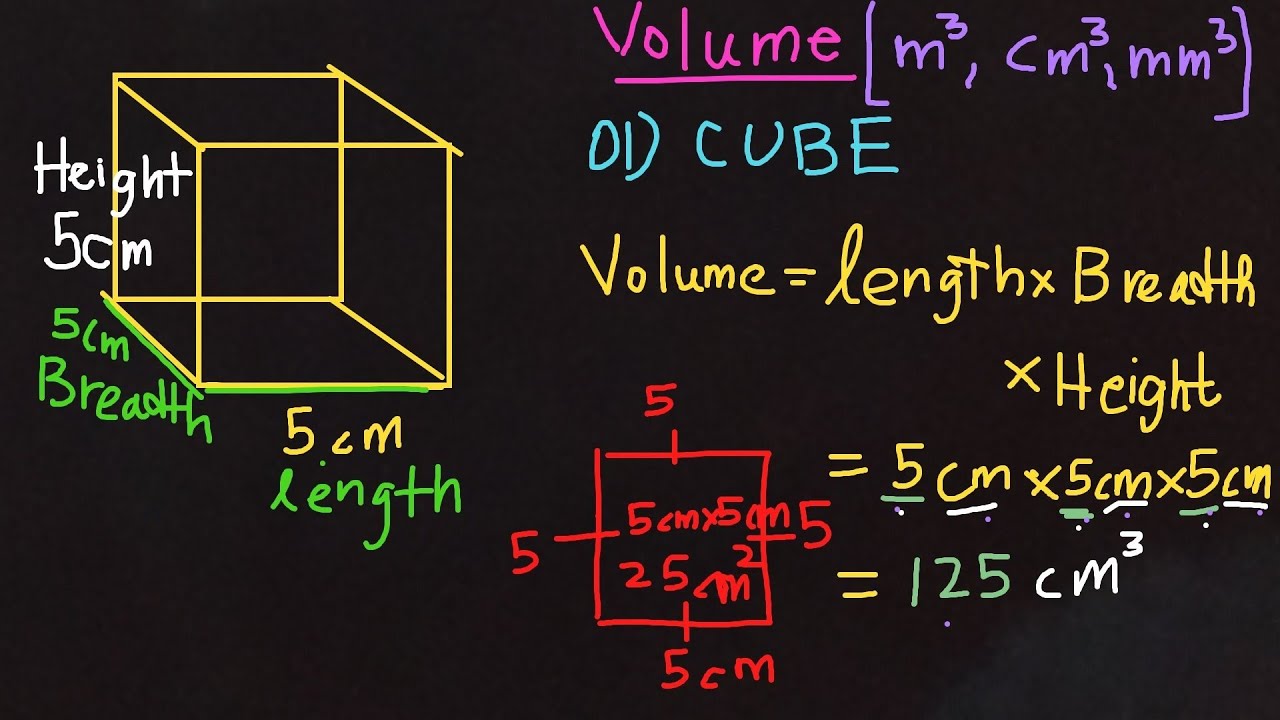 Volume [m³, cm³, mm³]
01) CUBE
Height
5cm
5cm
Breadth
5cm
length
Volume = length x Breadth
x Height
= 5cm x 5cm x 5cm
= 125 cm³
5
5
5cm x 5cm
25cm²
5
5cm